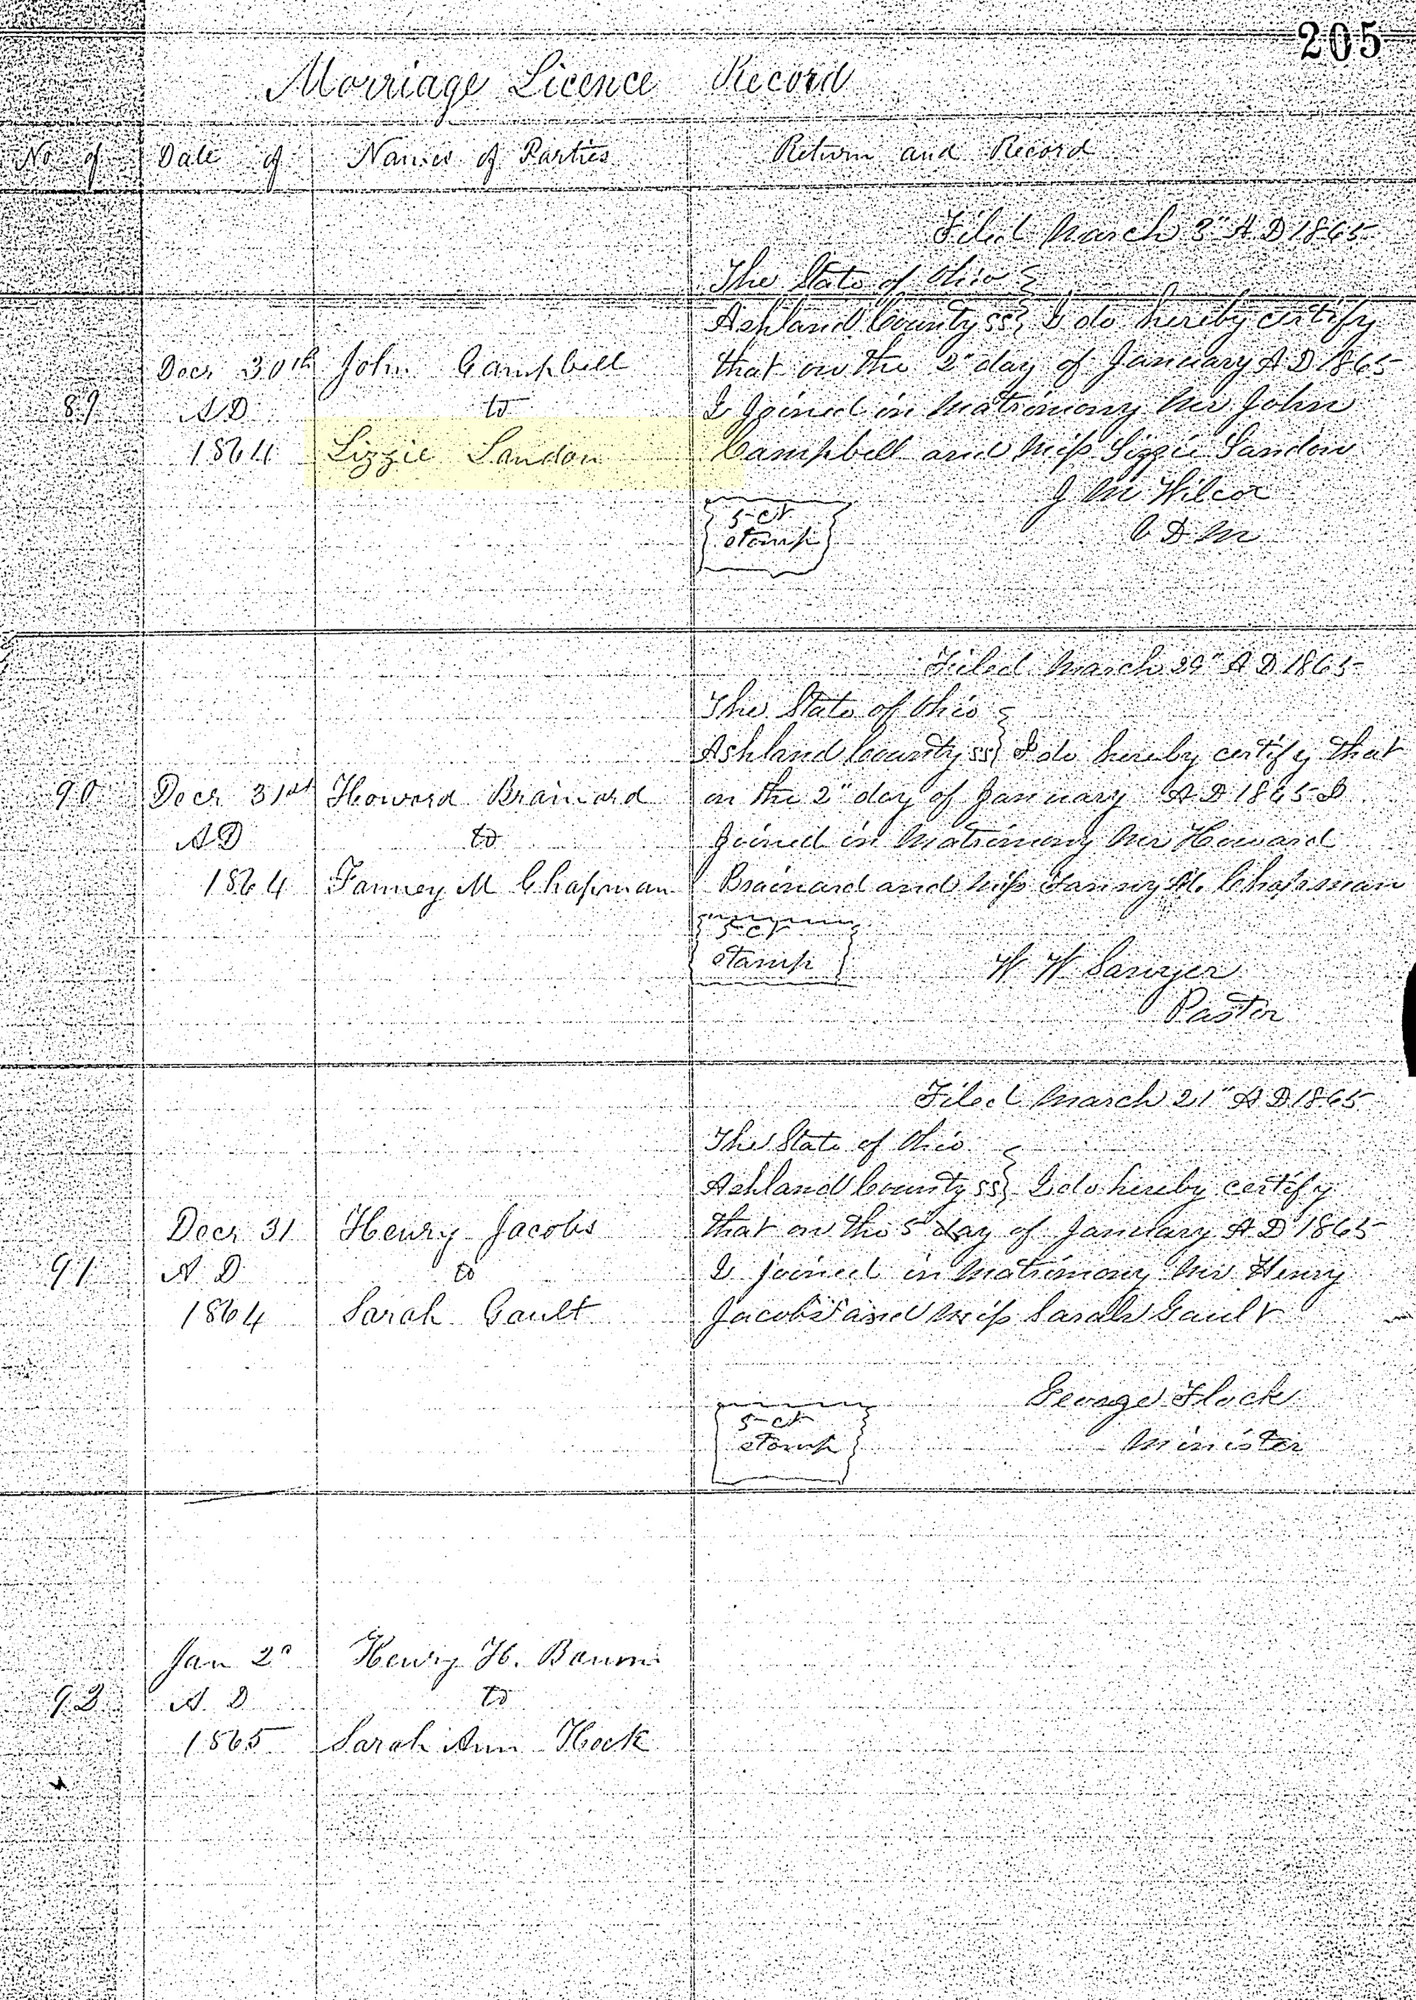 205
Marriage Licence Record
No of
Date of
Names of Parties
Return and Record
89
Decr 30th
A D
1864
John Campbell
to
Lizzie Landon
Filed March 3" A D 1865
The State of Ohio
Ashland County ss} I do hereby certify
that on the 2" day of January A D 1865
I Joined in Matrimony Mr John
Campbell and Miss Lizzie Landon
J M Wilcox
5 ct
stamp
90
Decr 31st
A D
1864
Howard Brainard
to
Fanney M Chapman
Filed March 29" A D 1865
The State of Ohio
Ashland County ss} I do hereby certify that
on the 2" day of January A D 1865 I
Joined in Matrimony Mr Howard
Brainard and Miss Fanny M. Chapman
5 ct
stamp
W W Sawyer
Pastor
91
Decr 31
A D
1864
Henry Jacobs
to
Sarah Gault
Filed March 21" A D 1865
The State of Ohio
Ashland County ss} I do hereby certify
that on the 5" day of January A D 1865
I joined in Matrimony Mr Henry
Jacobs and Miss Sarah Gault
George Flock
Minister
5 ct
stamp
Jan 2d
A D
1865
Henry H.
to
Sarah Ann Heck